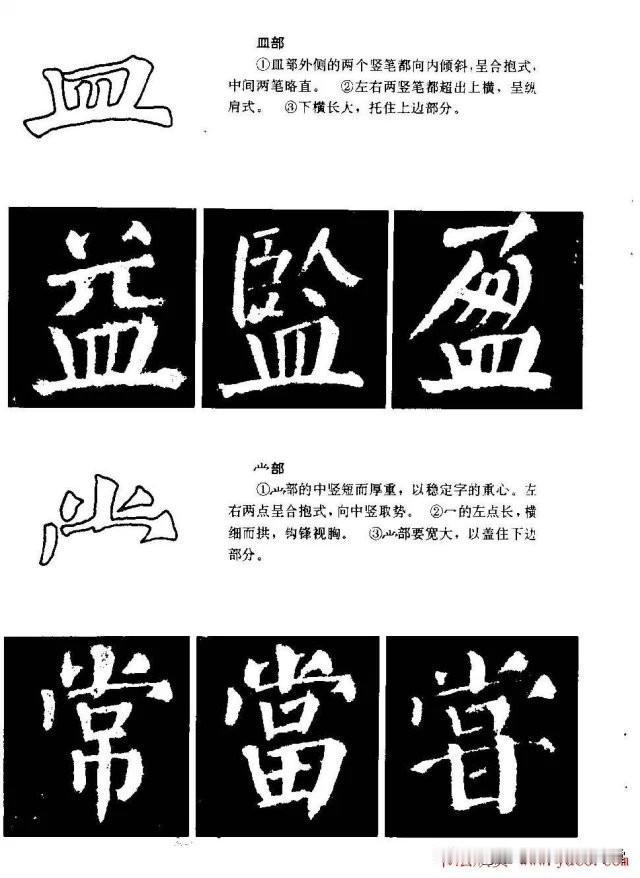 皿
皿部
①皿部外侧的两个竖笔都向内倾斜,呈合抱式,
中间两笔略直。 ②左右两竖笔都超出上横,呈纵
肩式。 ③下横长大,托住上边部分。
益 監 盈
⺌部
①⺌部的中竖短而厚重,以稳定字的重心。左
右两点呈合抱式,向中竖取势。 ②冖的左点长,横
细而拱,钩锋视胸。 ③⺌部要宽大,以盖住下边
部分。
常 當 甞